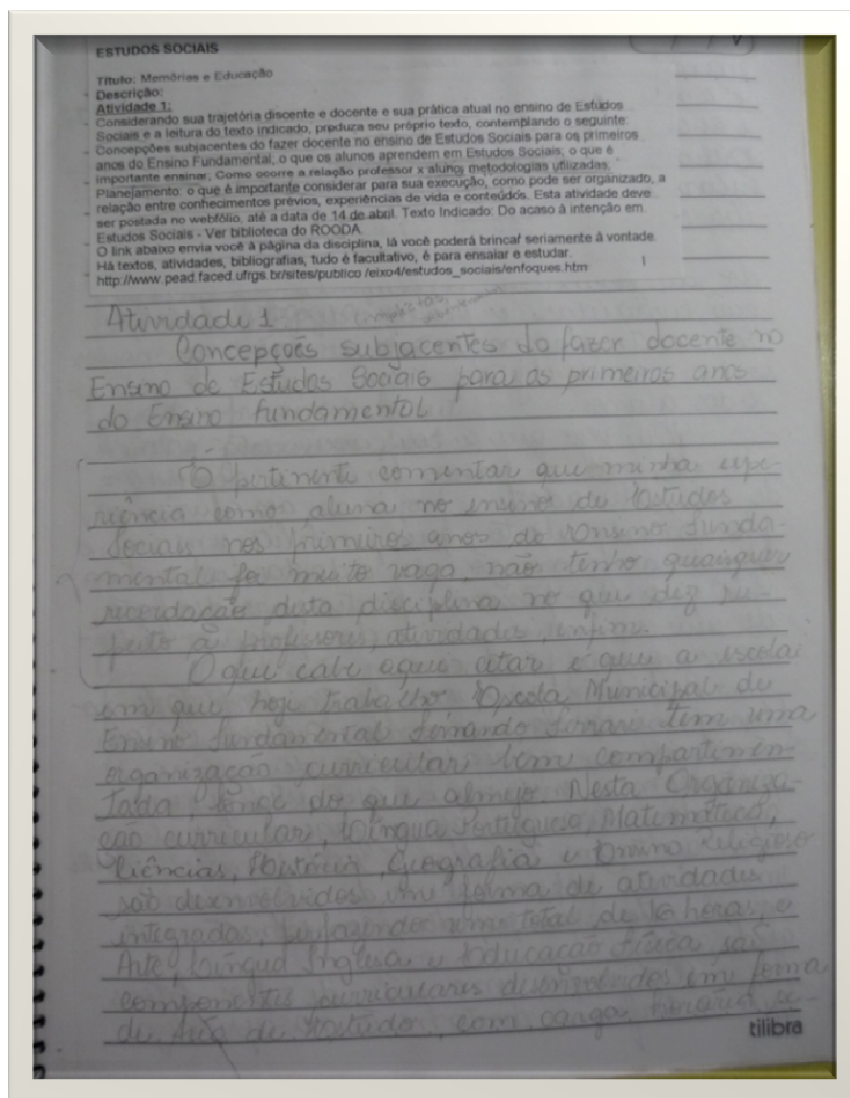 ESTUDOS SOCIAIS
Título: Memórias e Educação
Descrição:
Atividade 1:
Considerando sua trajetória discente e docente e sua prática atual no ensino de Estudos
Sociais e a leitura do texto indicado, produza seu próprio texto, contemplando o seguinte:
Concepções subjacentes do fazer docente no ensino de Estudos Sociais para os primeiros
anos do Ensino Fundamental; o que os alunos aprendem em Estudos Sociais; o que é
importante ensinar; Como ocorre a relação professor x aluno; metodologias utilizadas;
Planejamento: o que é importante considerar para sua execução, como pode ser organizado, a
relação entre conhecimentos prévios, experiências de vida e conteúdos. Esta atividade deve
ser postada no webfólio, até a data de 14 de abril. Texto Indicado: Do acaso à intenção em
Estudos Sociais - Ver biblioteca do ROODA.
O link abaixo envia você à página da disciplina, lá você poderá brincar seriamente à vontade.
Há textos, atividades, bibliografias, tudo é facultativo, é para ensaiar e estudar.
http://www.pead.faced.ufrgs.br/sites/publico /eixo4/estudos_sociais/enfoques.htm
Atividade 1
Concepções subjacentes do fazer docente no
Ensino de Estudos Sociais para os primeiros anos
do Ensino fundamental
É pertinente comentar que minha expe-
riência como aluna no ensino de Estudos
Sociais nos primeiros anos do Ensino funda-
mental foi muito vaga, não tenho quaisquer
recordação desta disciplina no que diz res-
peito à professores, atividades, enfim.
O que cabe aqui citar é que a escola
em que hoje trabalho Escola Municipal de
Ensino fundamental fernando ferrari tem uma
organização curricular bem compartimen-
tada, longe do que almejo. Nesta Organiza-
ção curricular, Língua Portuguesa, Matemática,
Ciências, História, Geografia e Ensino Religioso
são desenvolvidos em forma de atividades
integradas, perfazendo um total de 16 horas, e
Arte, Língua Inglesa e Educação física são
componentes curriculares desenvolvidos em forma
de Área de Estudos, com carga horária
tilibra